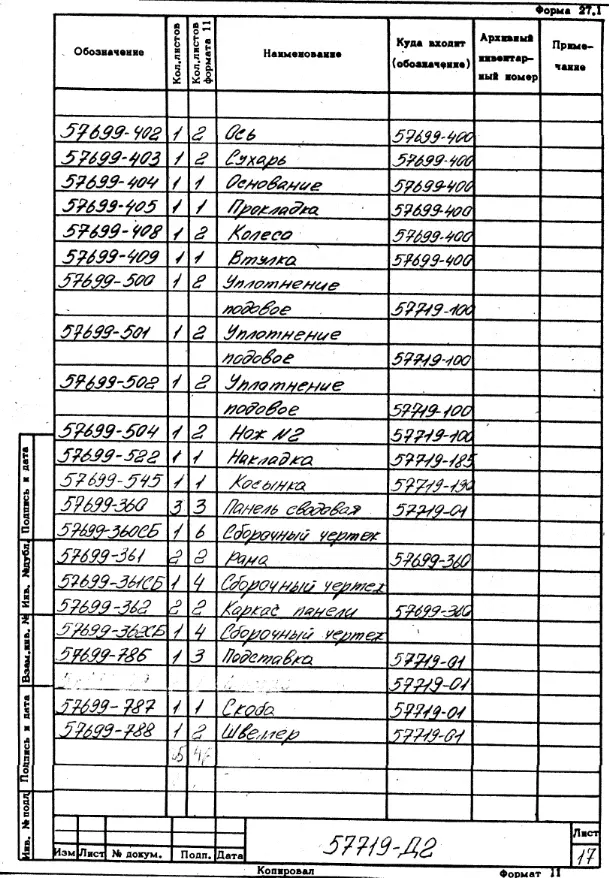 Форма 27.1
Обозначение Кол.листов Кол.листов формата 11 Наименование Куда входит (обозначение) Архивный инвентарный номер Примечание
57699-402 1 2 Ось 57699-400
57699-403 1 2 Сухарь 57699-400
57699-404 1 1 Основание 57699-400
57699-405 1 1 Прокладка 57699-400
57699-408 1 2 Колесо 57699-400
57699-409 1 1 Втулка 57699-400
57699-500 1 2 Уплотнение
подовое 57719-100
57699-501 1 2 Уплотнение
подовое 57719-100
57699-502 1 2 Уплотнение
подовое 57719-100
57699-504 1 2 Нож №2 57719-100
57699-522 1 1 Накладка 57719-185
57699-545 1 1 Косынка 57719-190
57699-360 3 3 Панель сводовая 57719-01
57699-360СБ 1 6 Сборочный чертеж
57699-361 2 2 Рама 57699-360
57699-361СБ 1 4 Сборочный чертеж
57699-362 2 2 Каркас панели 57699-360
57699-362СБ 1 4 Сборочный чертеж
57699-786 1 3 Подставка 57719-01
57719-01
57699-787 1 1 Скоба 57719-01
57699-788 1 2 Швеллер 57719-01
Инв. № подл. Подпись и дата Взам.инв. № Инв. №дубл. Подпись и дата
Изм Лист № докум. Подп. Дата
57719-Д2
Лист
17
Копировал Формат 11